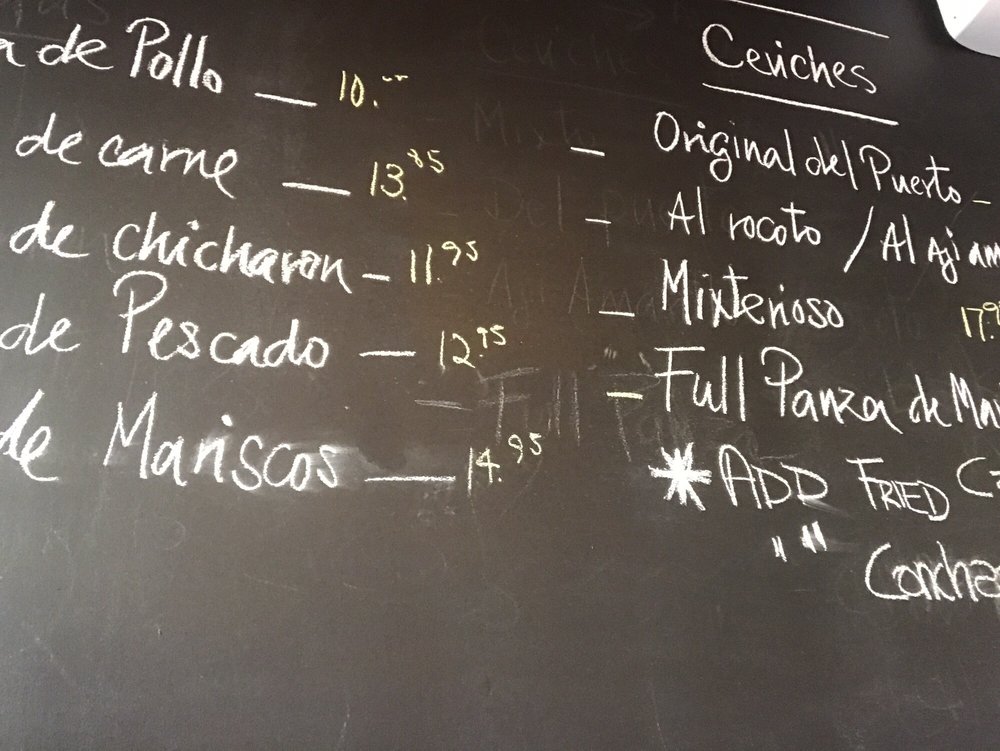 a de Pollo — 10.
de carne — 13.85
de chicharon - 11.95
de Pescado — 12.95
de Mariscos — 14.95
Ceviches
- Original del Puerto -
- Al rocoto / Al Aji am
- Mixterioso 17.9
- Full Panza de Mar
* ADD FRIED
" " Concha